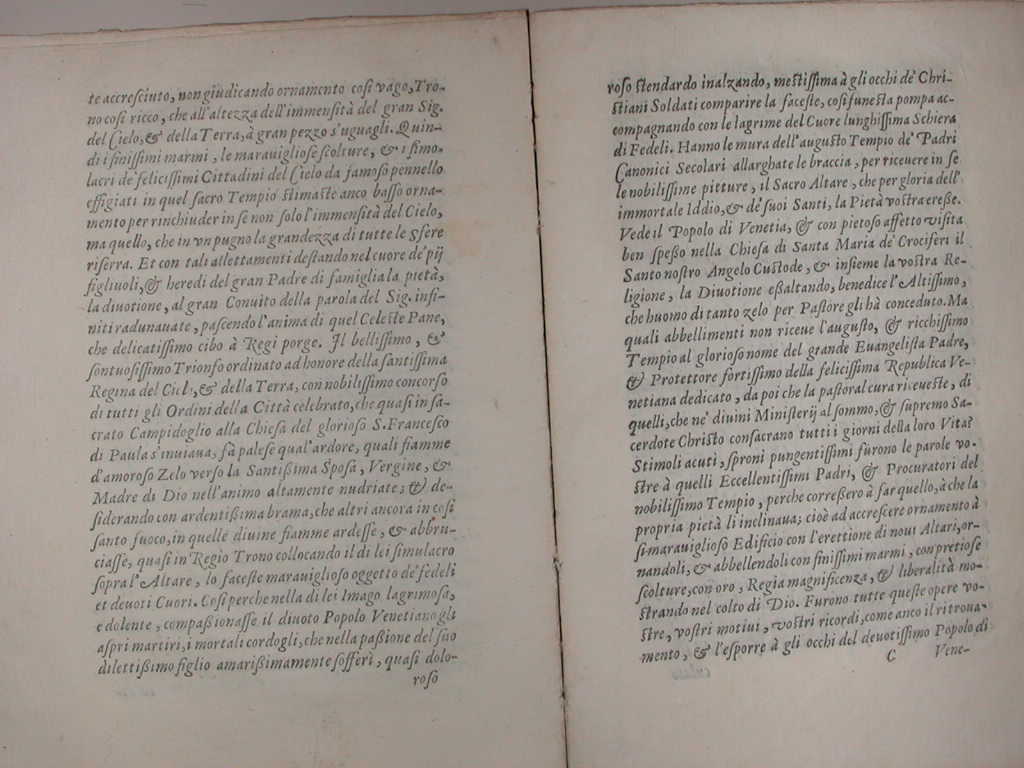 te accreſciuto, non giudicando ornamento coſi vago, Tro-
no coſi ricco, che all'altezza dell'immenſità del gran Sig.
del Cielo, & della Terra, à gran pezzo s'uguagli. Quin-
di i finiſſimi marmi, le marauiglioſe ſcolture, & i ſimo-
lacri de' feliciſſimi Cittadini del Cielo da famoſo pennello
effigiati in quel ſacro Tempio ſtimaſte anco baſſo orna-
mento per rinchiuder in ſe non ſolo l'immenſità del Cielo,
ma quello, che in vn pugno la grandezza di tutte le Sfere
riſerra. Et con tali allettamenti deſtando nel cuore de' pij
figliuoli, & heredi del gran Padre di famiglia la pietà,
la diuotione, al gran Conuito della parola del Sig. infi-
niti radunauate, paſcendo l'anima di quel Celeſte Pane,
che delicatiſſimo cibo à Regi porge. Il belliſſimo, &
ſontuoſiſſimo Trionfo ordinato ad honore della ſantiſſima
Regina del Ciel, & della Terra, con nobiliſſimo concorſo
di tutti gli Ordini della Città celebrato, che quaſi in ſa-
crato Campidoglio alla Chieſa del glorioſo S. Franceſco
di Paula s'inuiaua, fà paleſe qual'ardore, quali fiamme
d'amoroſo Zelo verſo la Santiſſima Spoſa, Vergine, &
Madre di Dio nell'animo altamente nudriate; & de-
ſiderando con ardentiſſima brama, che altri ancora in coſi
ſanto fuoco, in quelle diuine fiamme ardeſſe, & abbru-
ciaſſe, quaſi in Regio Trono collocando il di lei ſimulacro
ſopra l'Altare, lo faceſte marauiglioſo oggetto de' fedeli
et deuoti Cuori. Coſi perche nella di lei Imago lagrimoſa,
e dolente, compaſſionaſſe il diuoto Popolo Venetiano gli
aſpri martiri, i mortali cordogli, che nella paſſione del ſuo
dilettiſſimo figlio amariſſimamente ſofferì, quaſi dolo-
roſo
roſo ſtendardo inalzando, meſtiſſima à gli occhi de' Chri-
ſtiani Soldati comparire la faceſte, coſi funeſta pompa ac-
compagnando con le lagrime del Cuore lunghiſſima Schiera
di Fedeli. Hanno le mura dell'auguſto Tempio de' Padri
Canonici Secolari allarghate le braccia, per riceuere in ſe
le nobiliſſime pitture, il Sacro Altare, che per gloria dell'
immortale Iddio, & de' ſuoi Santi, la Pietà voſtra ereſſe.
Vede il Popolo di Venetia, & con pietoſo affetto viſita
ben ſpeſſo nella Chieſa di Santa Maria de' Crociferi il
Santo noſtro Angelo Cuſtode, & inſieme la voſtra Re-
ligione, la Diuotione eſſaltando, benedice l'Altiſſimo,
che huomo di tanto zelo per Paſtore gli hà conceduto. Ma
quali abbellimenti non riceue l'auguſto, & ricchiſſimo
Tempio al glorioſo nome del grande Euangeliſta Padre,
& Protettore fortiſſimo della feliciſſima Republica Ve-
netiana dedicato, da poi che la paſtoral cura riceueſte, di
quelli, che ne' diuini Miniſterij al ſommo, & ſupremo Sa-
cerdote Chriſto conſacrano tutti i giorni della loro Vita?
Stimoli acuti, ſproni pungentiſſimi furono le parole vo-
ſtre à quelli Eccellentiſſimi Padri, & Procuratori del
nobiliſſimo Tempio, perche correſſero à far quello, à che la
propria pietà li inclinaua; cioè ad accreſcere ornamento à
ſi marauiglioſo Edificio con l'erettione di noui Altari, or-
nandoli, & abbellendoli con finiſſimi marmi, con pretioſe
ſcolture, con oro, Regia magnificenza, & liberalità mo-
ſtrando nel colto di Dio. Furono tutte queſte opere vo-
ſtre, voſtri motiui, voſtri ricordi, come anco il ritroua-
mento, & l'eſporre à gli occhi del deuotiſſimo Popolo di
C Vene-